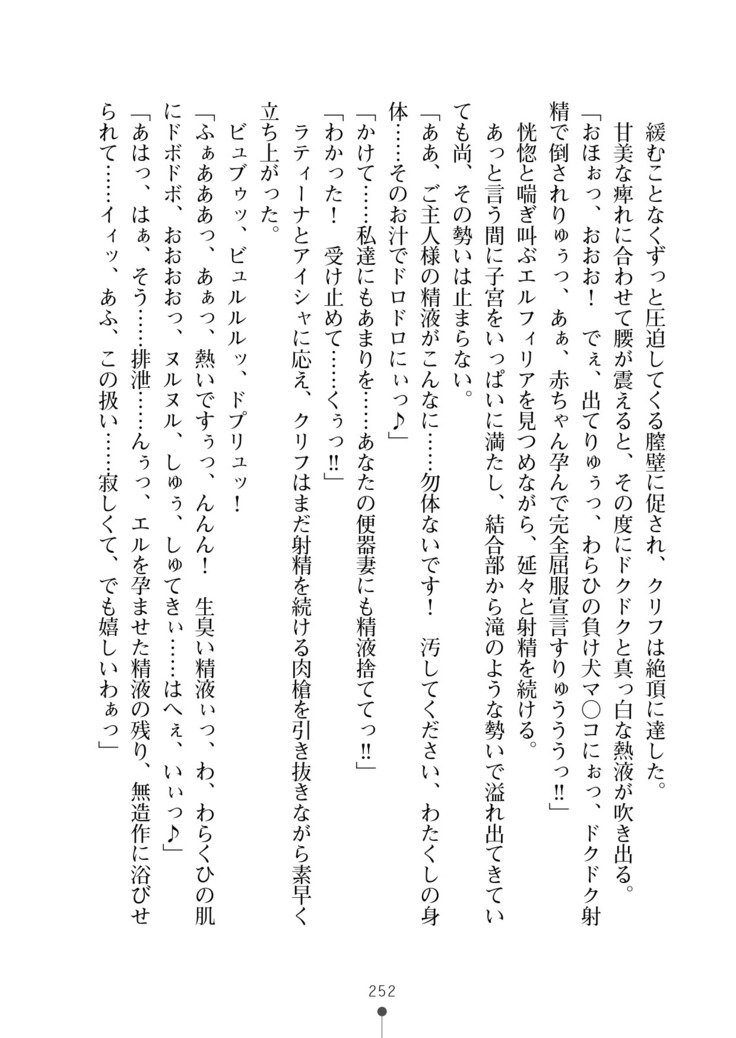 緩むことなくずっと圧迫してくる膣壁に促され、クリフは絶頂に達した。
甘美な痺れに合わせて腰が震えると、その度にドクドクと真っ白な熱液が吹き出る。
「おほぉっ、おおお！　でぇ、出てりゅぅっ、わらひの負け犬マ〇コにぉっ、ドクドク射
精で倒されりゅぅっ、あぁ、赤ちゃん孕んで完全屈服宣言すりゅうううっ!!」
恍惚と喘ぎ叫ぶエルフィリアを見つめながら、延々と射精を続ける。
あっと言う間に子宮をいっぱいに満たし、結合部から滝のような勢いで溢れ出てきてい
ても尚、その勢いは止まらない。
「ああ、ご主人様の精液がこんなに……勿体ないです！　汚してください、わたくしの身
体……そのお汁でドロドロにぃっ♪」
「かけて……私達にもあまりを……あなたの便器妻にも精液捨ててっ!!」
「わかった！　受け止めて……くぅっ!!」
ラティーナとアイシャに応え、クリフはまだ射精を続ける肉槍を引き抜きながら素早く
立ち上がった。
ビュブゥッ、ビュルルルッ、ドプリュッ！
「ふぁあああっ、あぁっ、熱いですぅっ、んんん！　生臭い精液ぃっ、わ、わらくひの肌
にドボドボ、おおおおっ、ヌルヌル、しゅぅ、しゅてきぃ……はへぇ、いぃっ♪」
「あはっ、はぁ、そう……排泄……んぅっ、エルを孕ませた精液の残り、無造作に浴びせ
られて……イィッ、あふ、この扱い……寂しくて、でも嬉しいわぁっ」
252